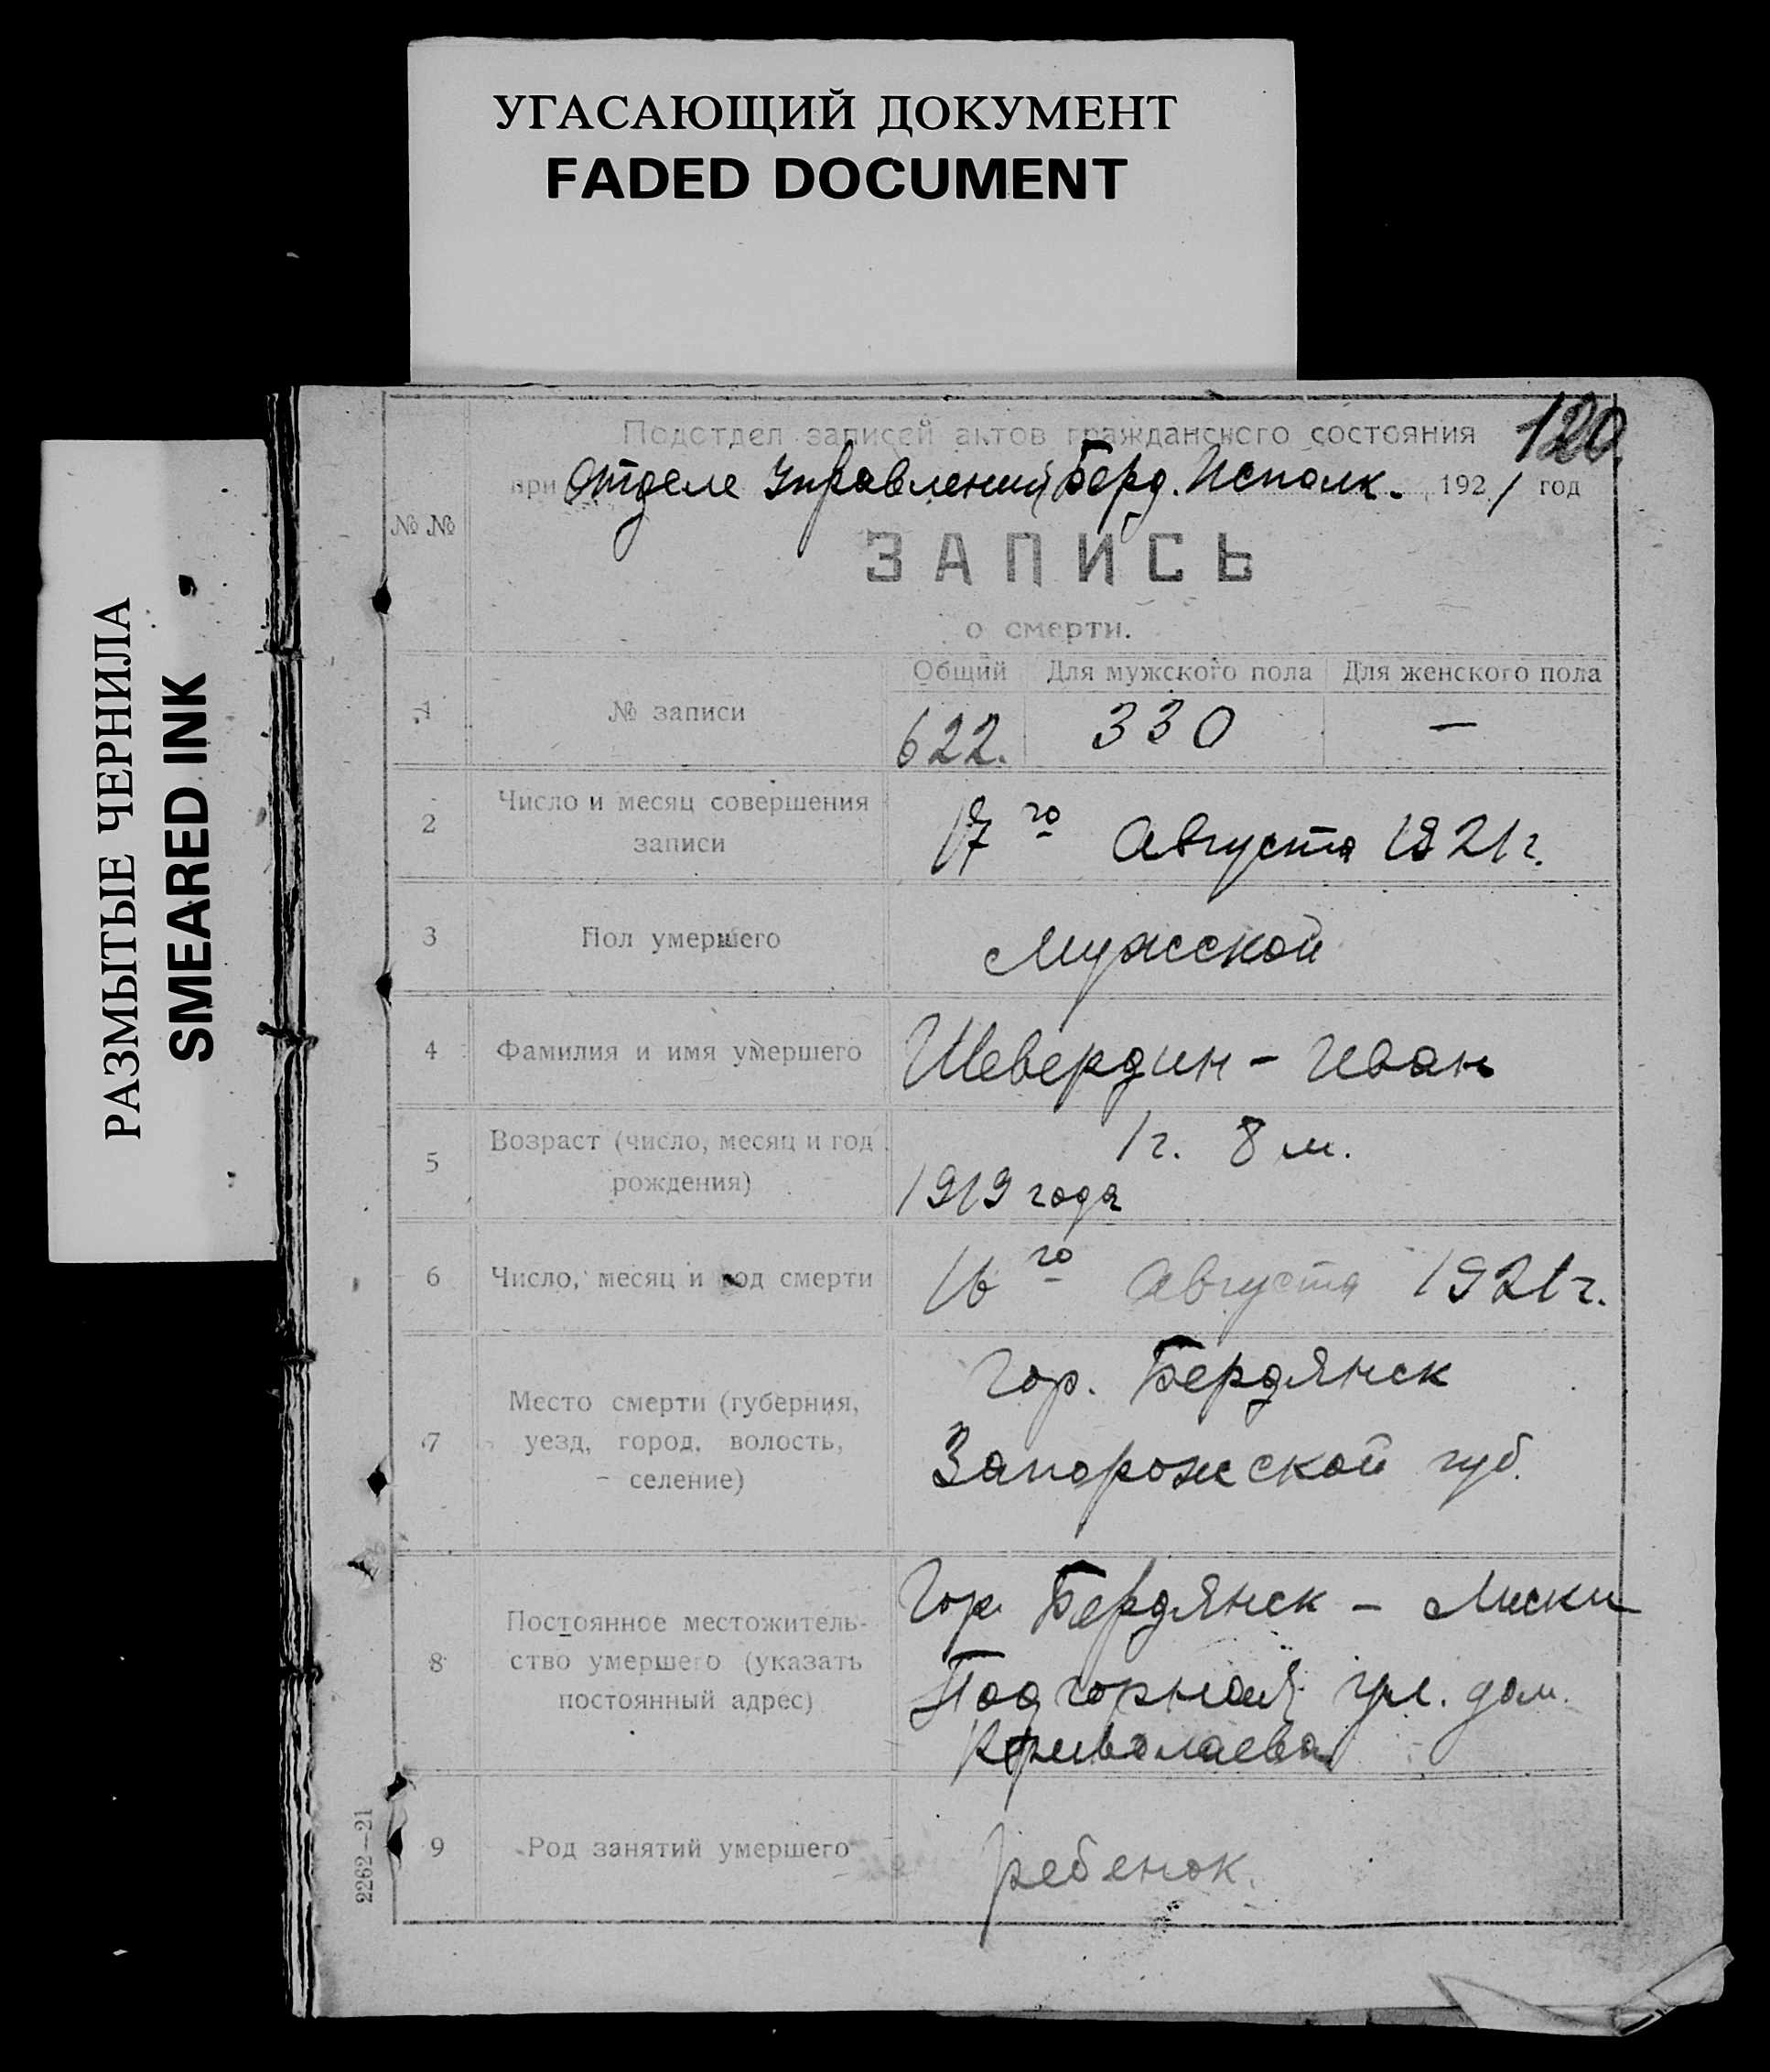 УГАСАЮЩИЙ ДОКУМЕНТ
FADED DOCUMENT
РАЗМЫТЫЕ ЧЕРНИЛА
SMEARED INK
120
Подотдел записей актов гражданского состояния
при Отделе Управления Берд. Исполк. 1921 год
№ №
ЗАПИСЬ
о смерти.
Общий Для мужского пола Для женского пола
1 № записи 622. 330 —
2 Число и месяц совершения
записи
17го Августа 1921 г.
3 Пол умершего Мужской
4 Фамилия и имя умершего Шевердин - Иван
5 Возраст (число, месяц и год
рождения)
1 г. 8 м.
1919 года
6 Число, месяц и год смерти 16го Августа 1921 г.
7 Место смерти (губерния,
уезд, город, волость,
селение)
Гор. Бердянск
Запорожской губ.
8 Постоянное местожитель-
ство умершего (указать
постоянный адрес)
Гор. Бердянск - Лиски
Подгорная ул. дом.
9 Род занятий умершего ребенок.
2262—21